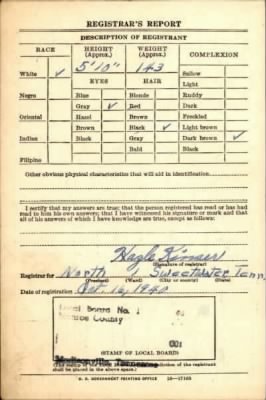 REGISTRAR'S REPORT
DESCRIPTION OF REGISTRANT
RACE HEIGHT (Approx.) WEIGHT (Approx.) COMPLEXION
White ✓ 5'10" 143 Sallow
EYES HAIR Light
Negro Blue Blonde Ruddy
Gray ✓ Red Dark
Oriental Hazel Brown Freckled
Brown Black ✓ Light brown
Indian Black Gray Dark brown ✓
Bald Black
Filipino
Other obvious physical characteristics that will aid in identification
I certify that my answers are true; that the person registered has read or has had read to him his own answers; that I have witnessed his signature or mark and that all of his answers of which I have knowledge are true, except as follows:
(Signature of registrar)
Registrar for North 1 Sweetwater Tenn.
(Precinct) (Ward) (City or county) (State)
Date of registration Oct. 16, 1940
Local Board No. 1
County
(STAMP OF LOCAL BOARD)
shall be placed in the above space.)
U. S. GOVERNMENT PRINTING OFFICE 16—17105